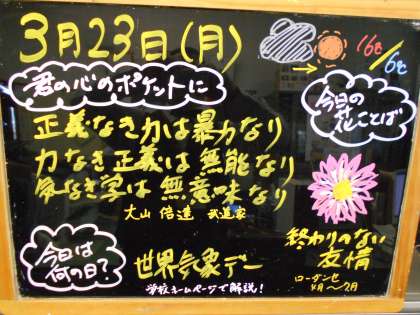 3月23日(月)
16℃/6℃
君の心のポケットに
正義なき力は暴力なり
力なき正義は無能なり
気なき学は無意味なり
大山 倍達 武道家
今日の
花ことば
終わりのない
友情
ローダンセ
4月〜7月
今日は
何の日?
世界気象デー
学校ホームページで解説!